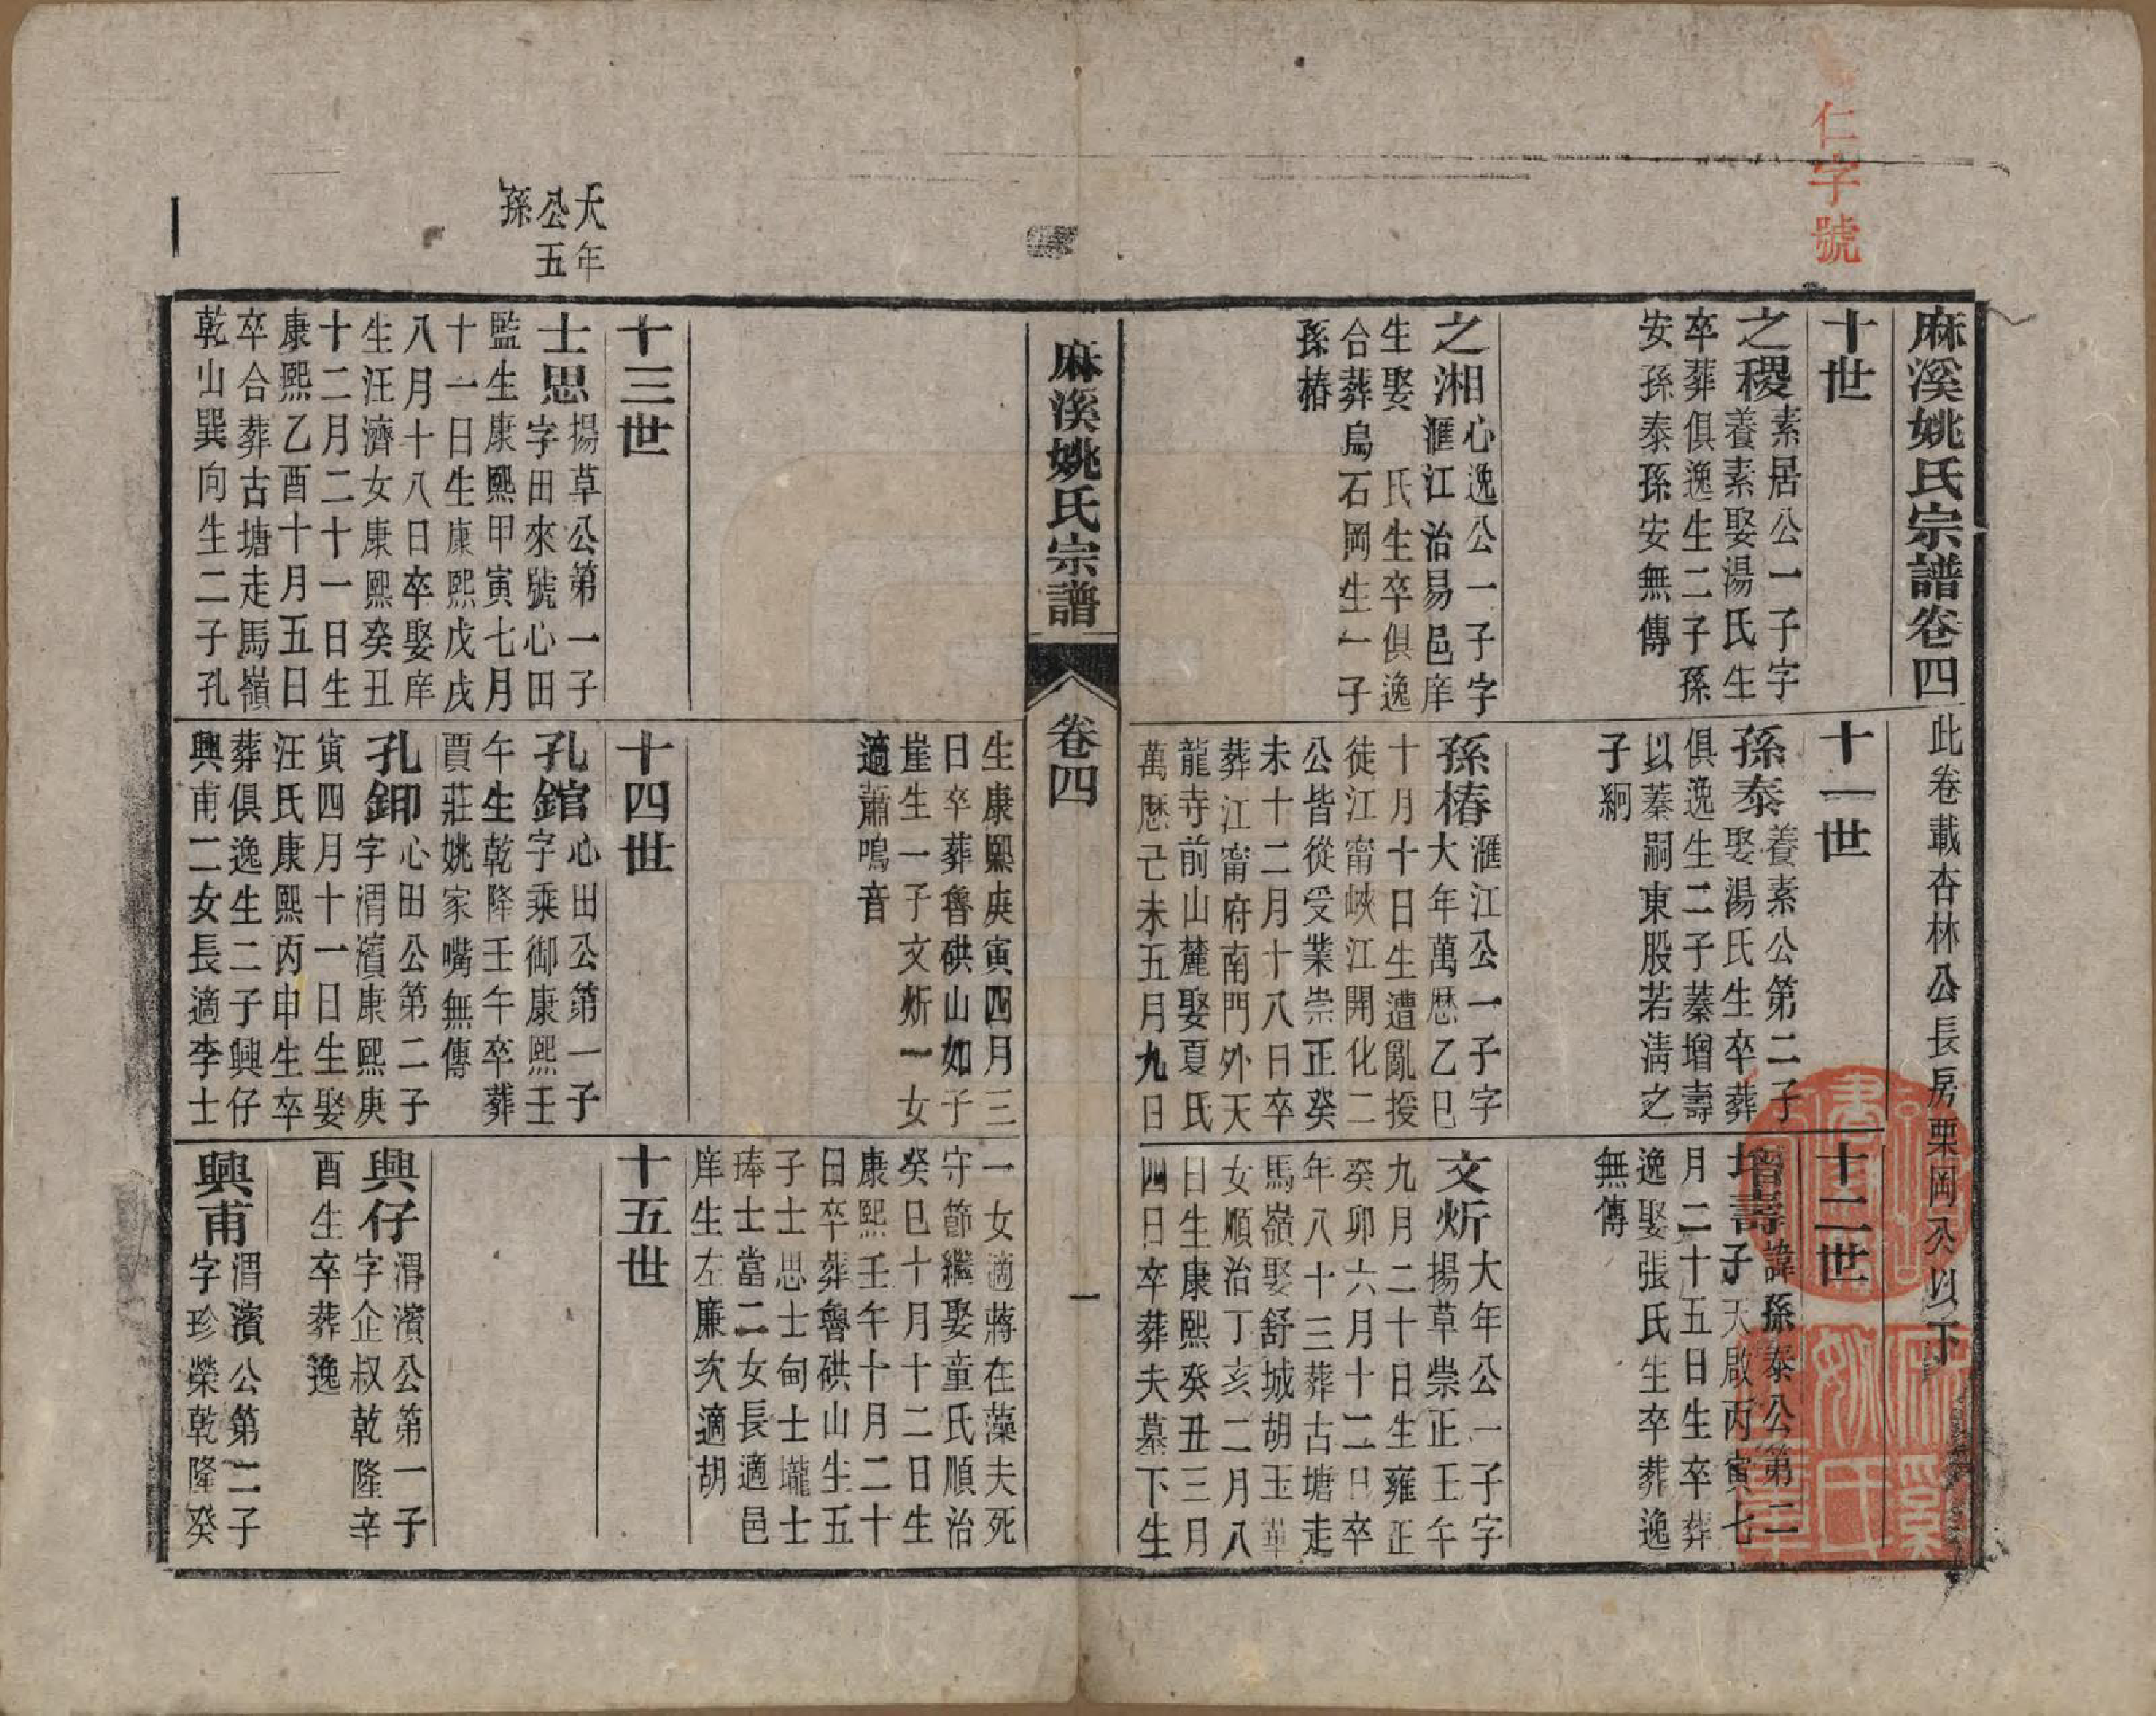 仁字號
麻溪姚氏宗譜卷四
此卷載杏林公長房栗岡公以下
十世
之稷
素居公一子字
養素娶湯氏生
卒葬俱逸生二子孫
安孫泰孫安無傳
之湘
心逸公一子字
滙江治易邑庠
生娶　氏生卒俱逸
合葬烏石岡生一子
孫椿
十一世
孫泰
養素公第二子
娶湯氏生卒葬
俱逸生二子蓁增壽
以蓁嗣東股若淸之
子絅
孫椿
滙江公一子字
大年萬厯乙巳
十月十日生遭亂授
徒江甯峽江開化二
公皆從受業崇正癸
未十二月十八日卒
葬江甯府南門外天
龍寺前山麓娶夏氏
萬厯己未五月九日
十二世
增壽
諱孫泰公第二
子天啟丙寅七
月二十五日生卒葬
逸娶張氏生卒葬逸
無傳
文炘
大年公一子字
揚草崇正壬午
九月二十日生雍正
癸卯六月十二日卒
年八十三葬古塘走
馬嶺娶舒城胡玉華
女順治丁亥二月八
日生康熙癸丑三月
四日卒葬夫墓下生
麻溪姚氏宗譜
卷四
一
大年
公五
孫
生康熙庚寅四月三
日卒葬魯硔山如子
崖生一子文炘一女
適蕭鳴音
一女適蔣在藻夫死
守節繼娶童氏順治
癸巳十月十二日生
康熙壬午十月二十
日卒葬魯硔山生五
子士思士甸士壠士
琫士當二女長適邑
庠生左廉次適胡
十三世
士思
揚草公第一子
字田來號心田
監生康熙甲寅七月
十一日生康熙戊戌
八月十八日卒娶庠
生汪濟女康熙癸丑
十二月二十一日生
康熙乙酉十月五日
卒合葬古塘走馬嶺
乾山巽向生二子孔
十四世
孔錧
心田公第一子
字乘御康熙壬
午生乾隆壬午卒葬
賈莊姚家嘴無傳
孔鉚
心田公第二子
字渭濱康熙庚
寅四月十一日生娶
汪氏康熙丙申生卒
葬俱逸生二子興仔
興甫二女長適李士
十五世
興仔
渭濱公第一子
字企叔乾隆辛
酉生卒葬逸
興甫
渭濱公第二子
字珍榮乾隆癸